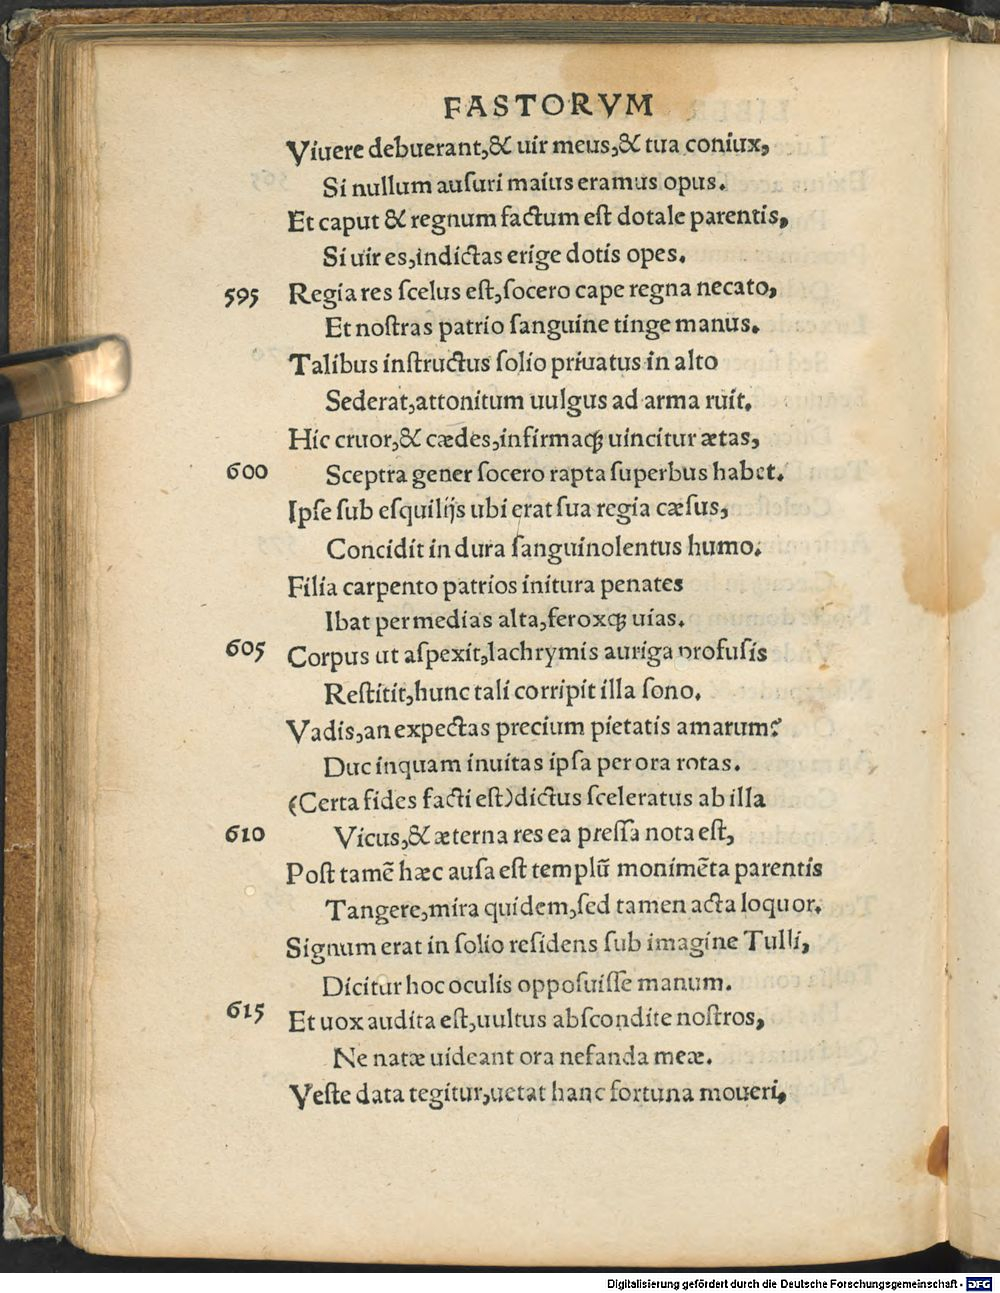 FASTORVM
Viuere debuerant,& uir meus,& tua coniux,
Si nullum auſuri maius eramus opus.
Et caput & regnum factum eſt dotale parentis,
Si uir es,indictas erige dotis opes.
595 Regia res ſcelus eſt,ſocero cape regna necato,
Et noſtras patrio ſanguine tinge manus.
Talibus inſtructus ſolio priuatus in alto
Sederat,attonitum uulgus ad arma ruit.
Hic cruor,& cædes,infirmaqꝫ uincitur ætas,
600 Sceptra gener ſocero rapta ſuperbus habet.
Ipſe ſub eſquilijs ubi erat ſua regia cæſus,
Concidit in dura ſanguinolentus humo.
Filia carpento patrios initura penates
Ibat per medias alta,feroxqꝫ uias.
605 Corpus ut aſpexit,lachrymis auriga profuſis
Reſtitit,hunc tali corripit illa ſono.
Vadis,an expectas precium pietatis amarum?
Duc inquam inuitas ipſa per ora rotas.
(Certa fides facti eſt)dictus ſceleratus ab illa
610 Vicus,& æterna res ea preſſa nota eſt,
Poſt tamẽ hæc auſa eſt templũ monimẽta parentis
Tangere,mira quidem,ſed tamen acta loquor.
Signum erat in ſolio reſidens ſub imagine Tulli,
Dicitur hoc oculis oppoſuiſſe manum.
615 Et uox audita eſt,uultus abſcondite noſtros,
Ne natæ uideant ora nefanda meæ.
Veſte data tegitur,uetat hanc fortuna moueri,
Digitalisierung gefördert durch die Deutsche Forschungsgemeinschaft - DFG